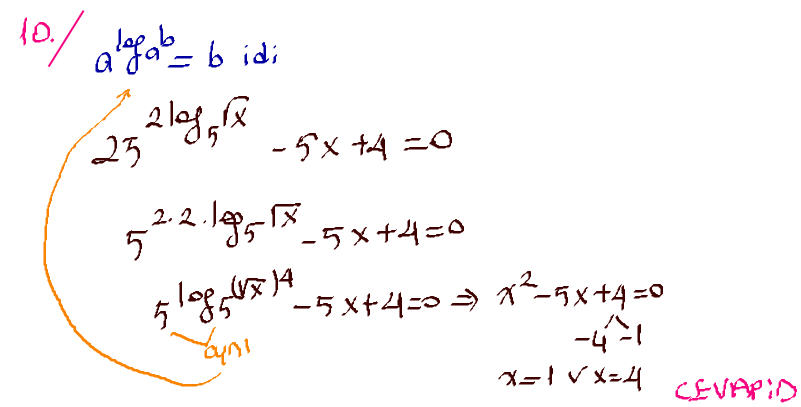 10./
a^{log_a b} = b idi
25^{2log_5 √x} - 5x + 4 = 0
5^{2.2.log_5 √x} - 5x + 4 = 0
5^{log_5 (√x)^4} - 5x + 4 = 0 ⇒ x² - 5x + 4 = 0
aynı
-4 -1
x = 1 ∨ x = 4
CEVAP: D